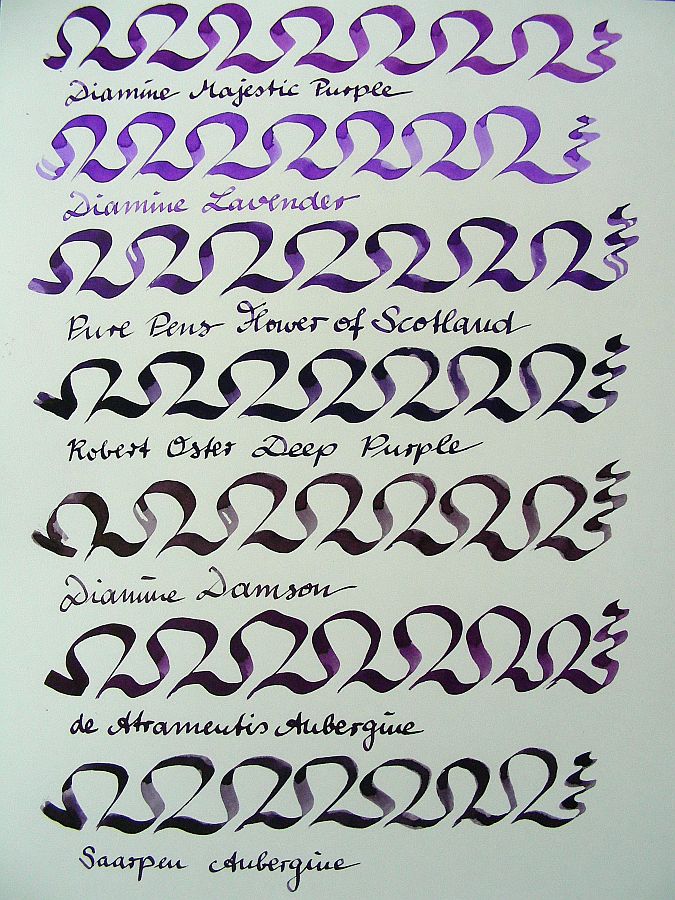 Diamine Majestic Purple
Diamine Lavender
Pure Pens Flower of Scotland
Robert Oster Deep Purple
Diamine Damson
de Atramentis Aubergine
Saarpen Aubergine